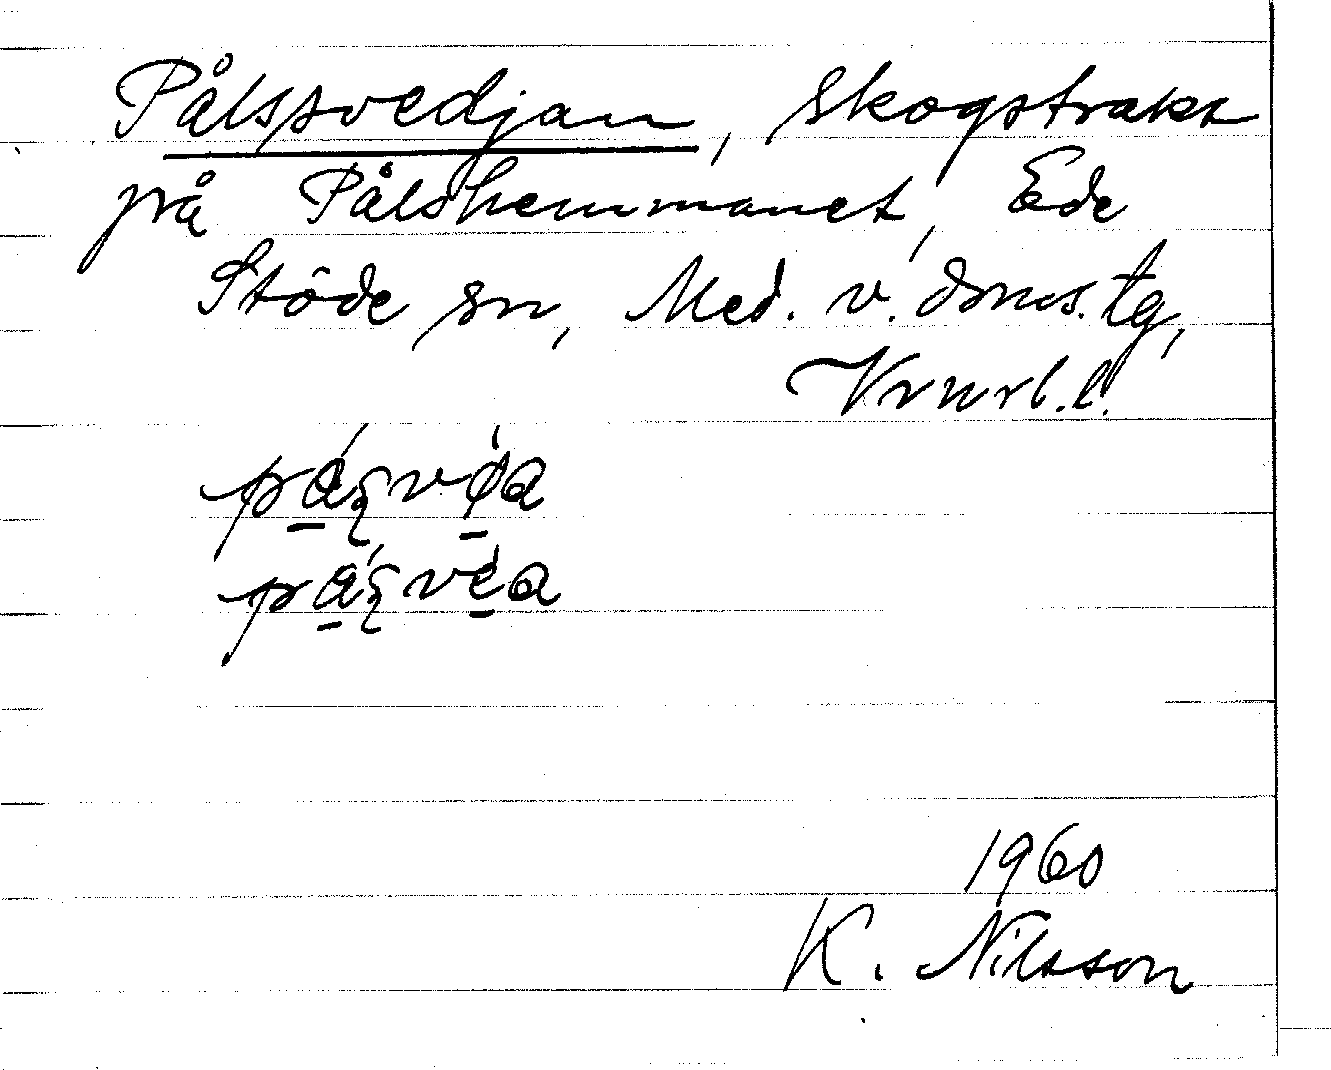 Pålssvedjan, skogstrakt
på Pålshemmanet, Ede
Stöde sn, Med. v. doms. tg,
Vrnrl. l.
1960
K. Nilsson